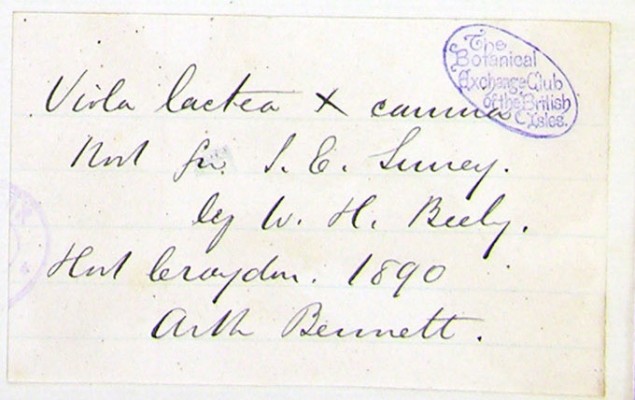 The
Botanical
Exchange Club
of the British
Isles.
Viola lactea × canina
Root fr. S. E. Surrey.
by W. H. Beeby.
Hort Croydon. 1890
Arth Bennett.